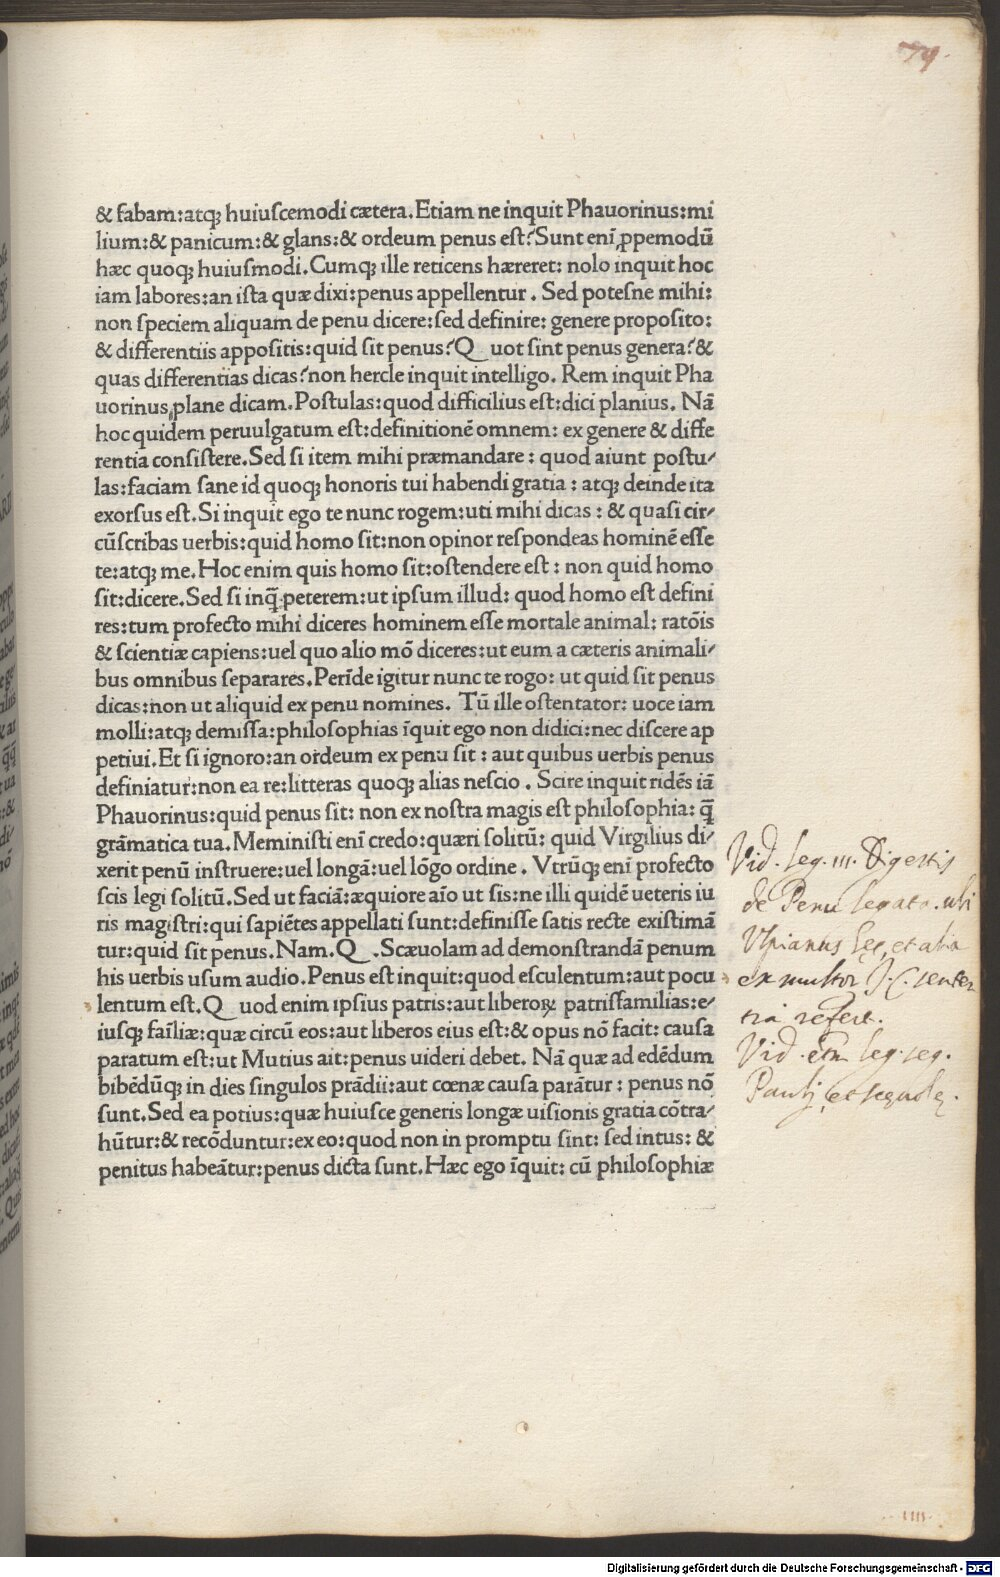 79.
& fabam:atq; huiuſcemodi cætera.Etiam ne inquit Phauorinus:mi
lium:& panicum:& glans:& ordeum penus eſt?Sunt enī ꝓpemodū
hæc quoq; huiuſmodi.Cumq; ille reticens hæreret: nolo inquit hoc
iam labores:an iſta quæ dixi:penus appellentur . Sed poteſne mihi:
non ſpeciem aliquam de penu dicere:ſed definire: genere propoſito:
& differentiis appoſitis:quid ſit penus?Q uot ſint penus genera?&
quas differentias dicas?non hercle inquit intelligo. Rem inquit Pha
uorinus,plane dicam.Poſtulas:quod difficilius eſt:dici planius. Nā
hoc quidem peruulgatum eſt:definitionē omnem: ex genere & diffe
rentia conſiſtere.Sed ſi item mihi præmandare : quod aiunt poſtu/
las:faciam ſane id quoq; honoris tui habendi gratia : atq; deinde ita
exorſus eſt.Si inquit ego te nunc rogem:uti mihi dicas : & quaſi cir/
cūſcribas uerbis:quid homo ſit:non opinor reſpondeas hominē eſſe
te:atq; me.Hoc enim quis homo ſit:oſtendere eſt : non quid homo
ſit:dicere.Sed ſi inq̄ peterem:ut ipſum illud: quod homo eſt defini
res:tum profecto mihi diceres hominem eſſe mortale animal: ratōis
& ſcientiæ capiens:uel quo alio mō diceres:ut eum a cæteris animali/
bus omnibus ſeparares.Perīde igitur nunc te rogo: ut quid ſit penus
dicas:non ut aliquid ex penu nomines. Tū ille oſtentator: uoce iam
molli:atq; demiſſa:philoſophias īquit ego non didici:nec diſcere ap
petiui.Et ſi ignoro:an ordeum ex penu ſit : aut quibus uerbis penus
definiatur:non ea re:litteras quoq; alias neſcio . Scire inquit ridēs iā
Phauorinus:quid penus ſit: non ex noſtra magis eſt philoſophia: q̄
grāmatica tua.Meminiſti enī credo:quæri ſolitū: quid Virgilius di/
xerit penū inſtruere:uel longā:uel lōgo ordine . Vtrūq; enī profecto
ſcis legi ſolitū.Sed ut faciā:æquiore aīo ut ſis:ne illi quidē ueteris iu
ris magiſtri:qui ſapiētes appellati ſunt:definiſſe ſatis recte exiſtimā
tur:quid ſit penus.Nam.Q .Scæuolam ad demonſtrandā penum
his uerbis uſum audio.Penus eſt inquit:quod eſculentum:aut pocu
lentum eſt.Q uod enim ipſius patris:aut liberoꝝ patriſfamilias:e/
iuſq; faīliæ:quæ circū eos:aut liberos eius eſt:& opus nō facit: cauſa
paratum eſt:ut Mutius ait:penus uideri debet. Nā quæ ad edēdum
bibēdūq; in dies ſingulos prādii:aut cœnæ cauſa parātur : penus nō
ſunt.Sed ea potius:quæ huiuſce generis longæ uiſionis gratia cōtra/
hūtur:& recōduntur:ex eo:quod non in promptu ſint: ſed intus: &
penitus habeātur:penus dicta ſunt.Hæc ego īquit: cū philoſophiæ
Vid. leg. III. Digestis
de Penu legato. ubi
Ulpianus et alia
ex multor J.C. senten
tia refert.
Vid. etm leg. seq.
Pauli, et
IIII.
Digitalisierung gefördert durch die Deutsche Forschungsgemeinschaft - DFG